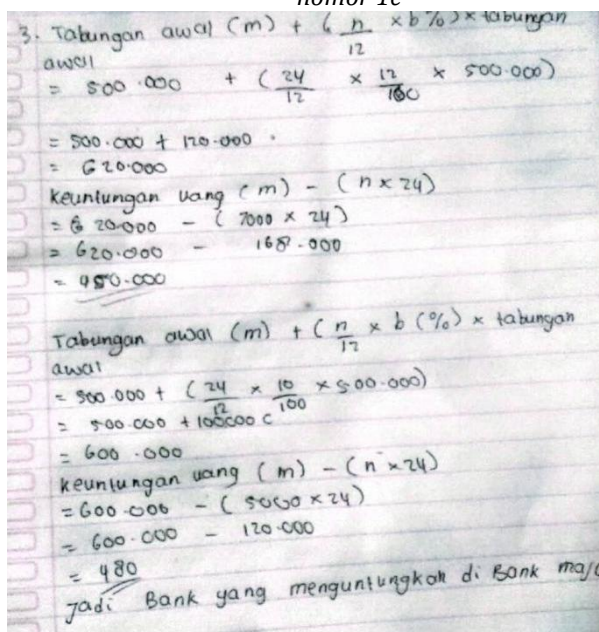 nomor 1c
3. Tabungan awal (m) + ( n/12 × b %) × tabungan
awal
= 500.000 + ( 24/12 × 12/100 × 500.000)
= 500.000 + 120.000 .
= 620.000
Keuntungan uang (m) - ( n × 24)
= 620.000 - ( 7000 × 24)
= 620.000 - 168.000
= 450.000
Tabungan awal (m) + ( n/12 × b (%) × tabungan
awal
= 500.000 + ( 24/12 × 10/100 × 500.000)
= 500.000 + 100000
= 600.000
Keuntungan uang (m) - (n × 24)
= 600.000 - ( 5000 × 24)
= 600.000 - 120.000
= 480
Jadi Bank yang menguntungkan di Bank